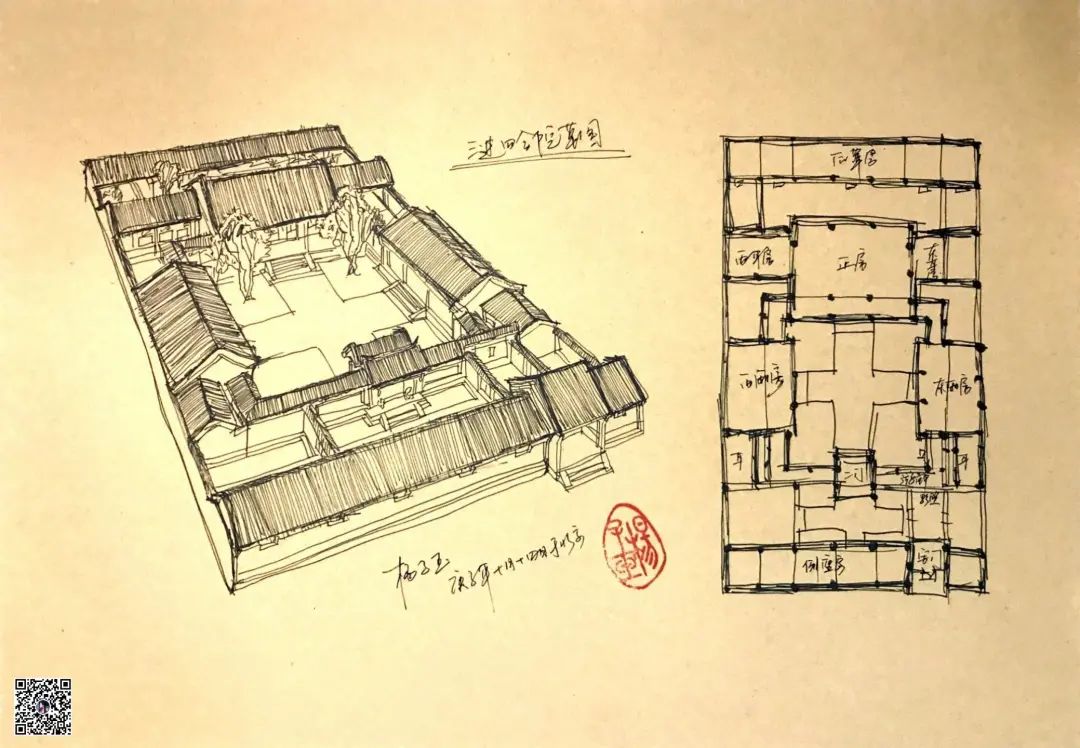 三进四合院草图
后罩房
西耳房
正房
东耳房
西厢房
东厢房
耳
耳
二门
影壁
倒座房
杨子玉
庚子年十月十四日于北京
杨子玉